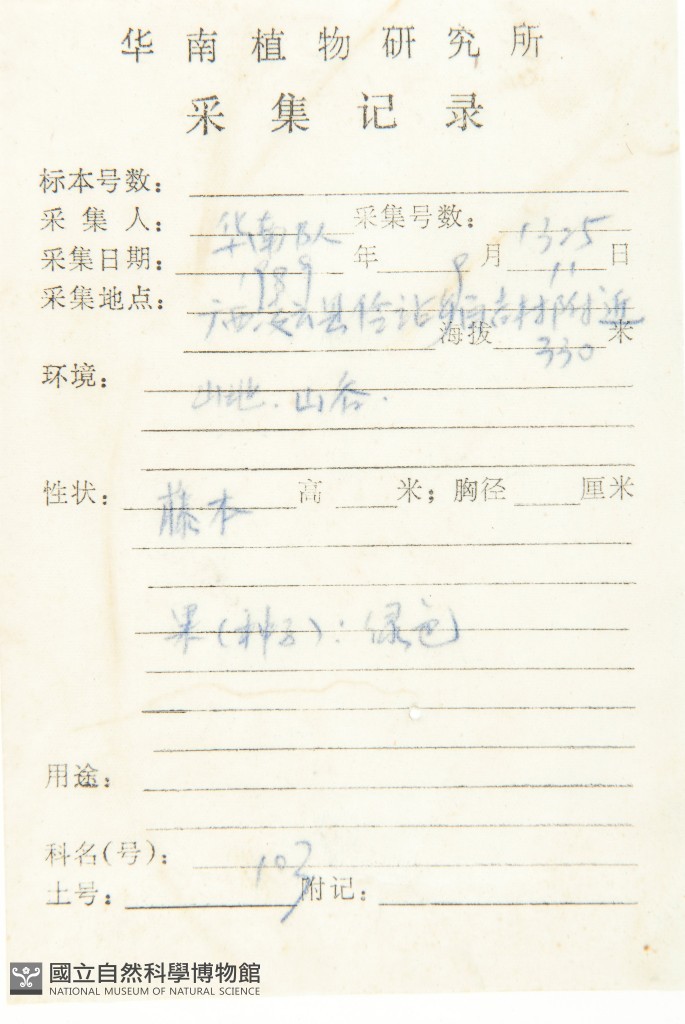 华南植物研究所
采集记录
标本号数:
采集人: 华南队 采集号数: 1325
采集日期: 1989年9月11日
采集地点: 广西 县 村附近
海拔 330 米
环境: 山地. 山谷.
性状: 藤本 高 米; 胸径 厘米
果(种子): 绿色
用途:
科名(号): 103
土号: 附记:
國立自然科學博物館
NATIONAL MUSEUM OF NATURAL SCIENCE